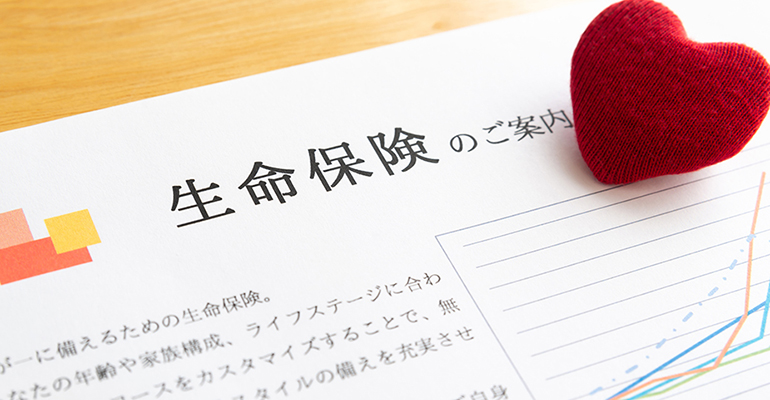 生命保険のご案内
が一に備えるための生命保険。
なたの年齢や家族構成、ライフステージに合わ
コースをカスタマイズすることで、無
スタイルの備えを充実させ
ご自身